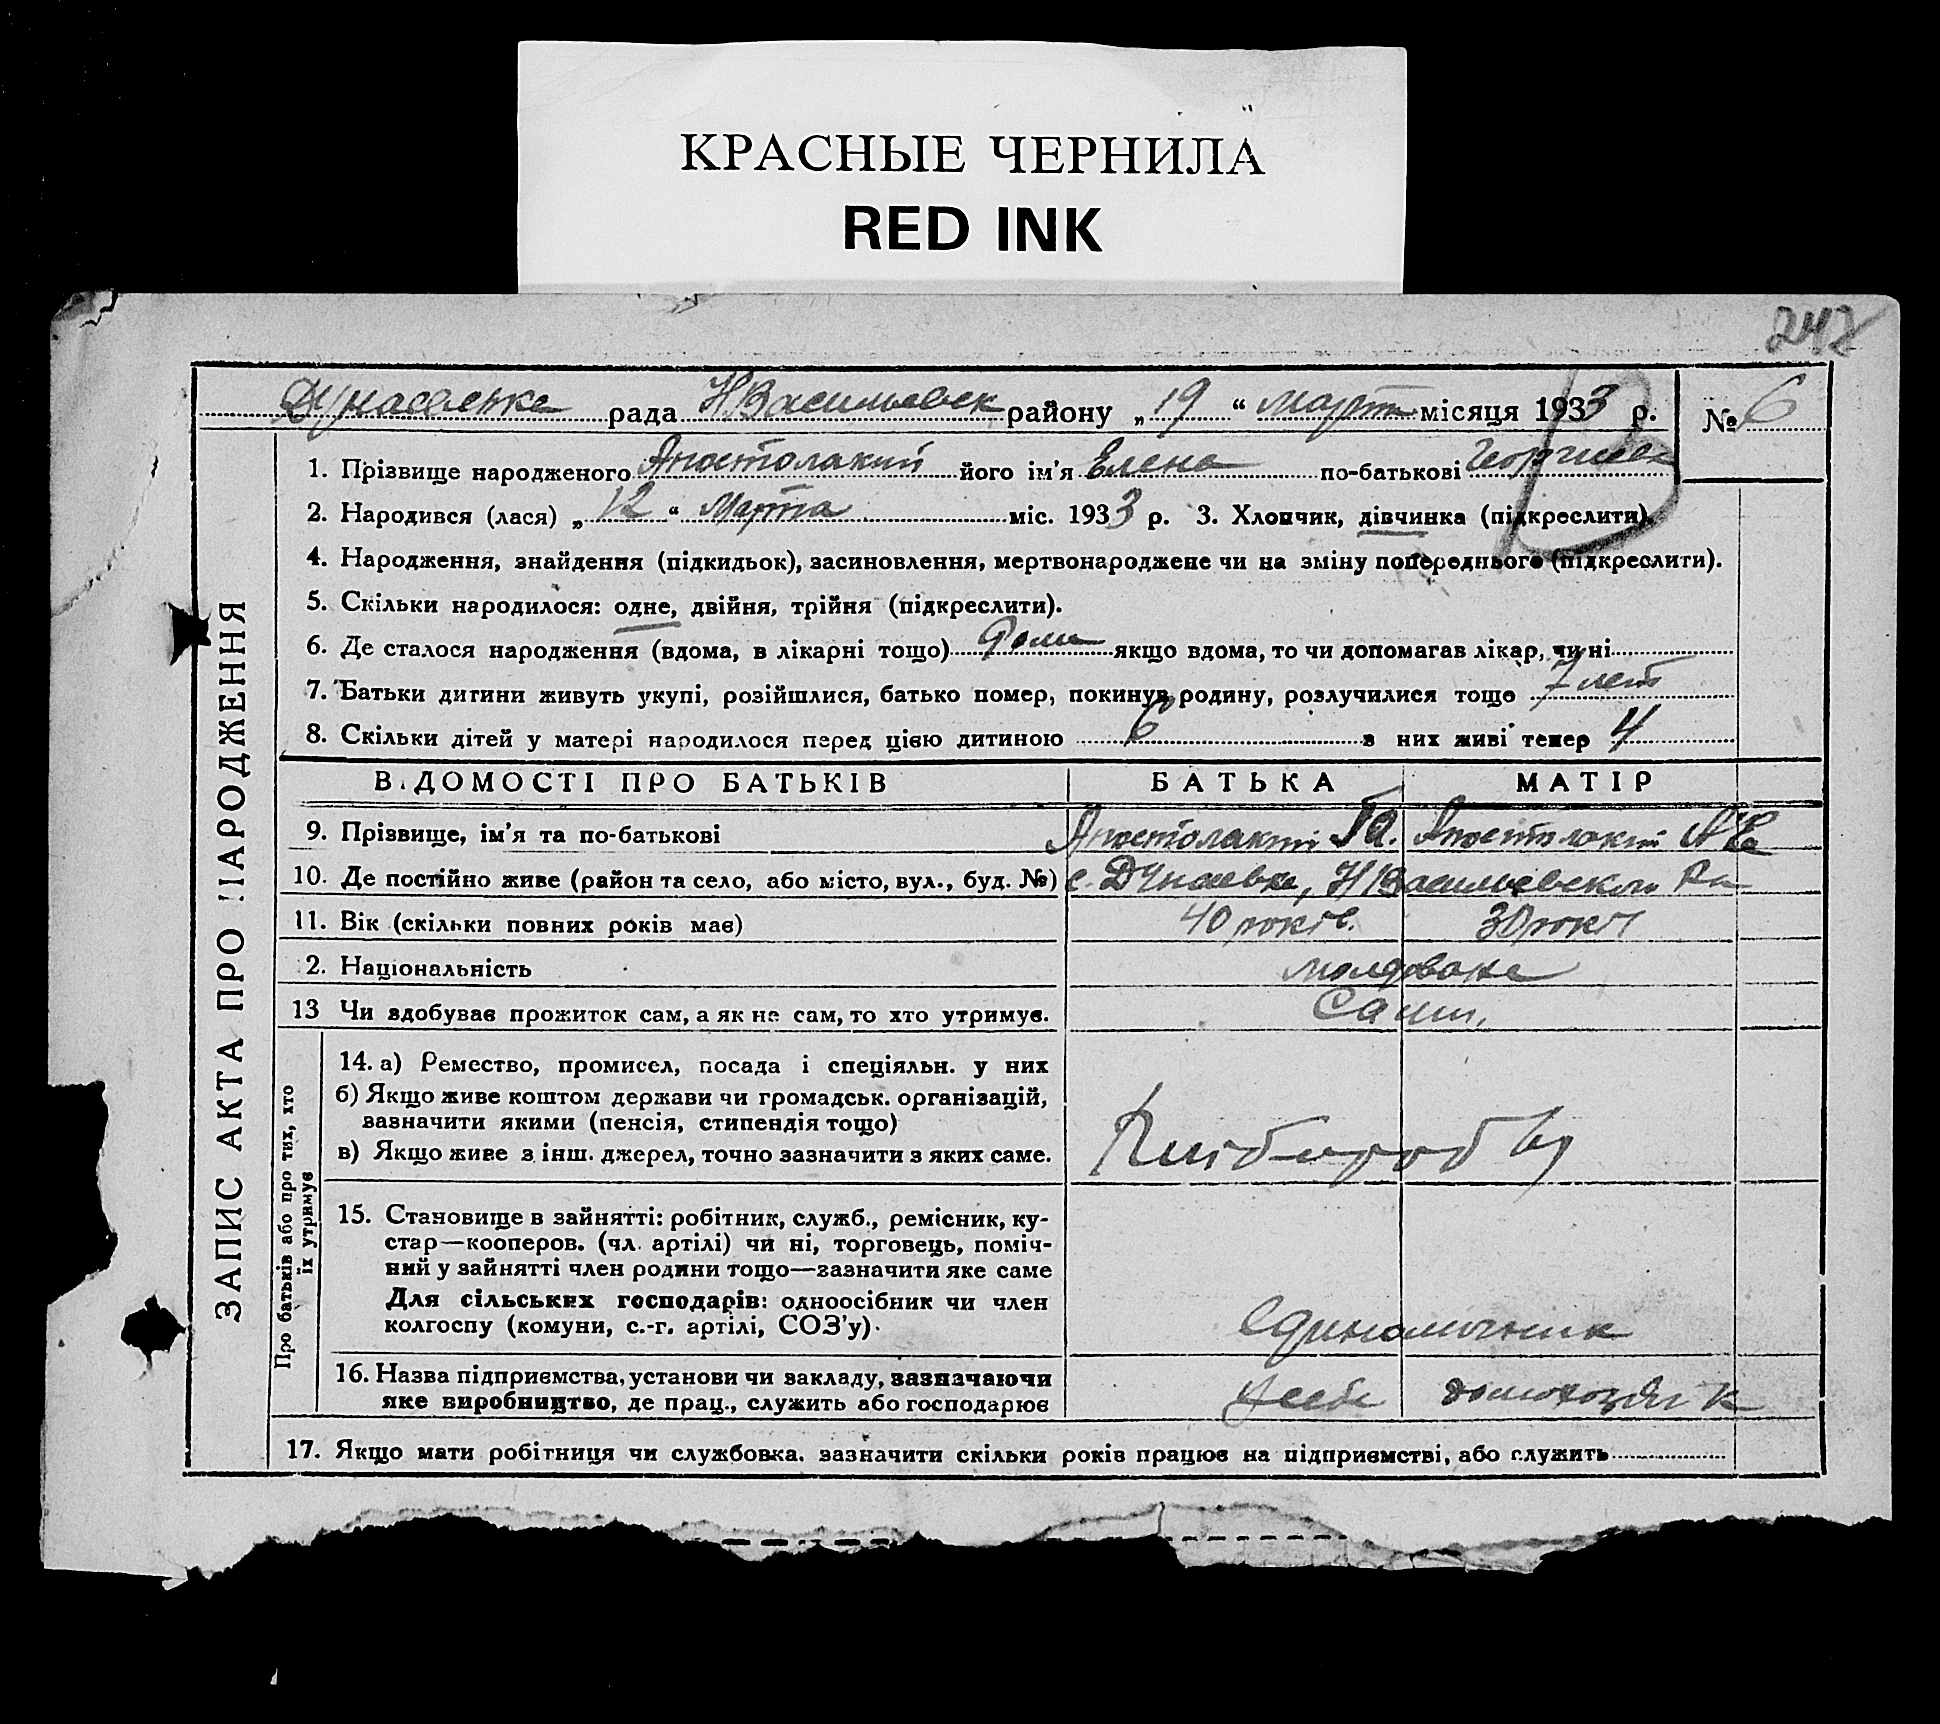 КРАСНЫЕ ЧЕРНИЛА
RED INK
242
Дунаевська рада Н Васильевск району „19“ март місяця 1933 р. № 6
1. Прізвище народженого Апостолакий його ім'я Елена по-батькові Георгиев
2. Народився (лася) „12“ Марта міс. 1933 р. 3. Хлопчик, дівчинка (підкреслити).
4. Народження, знайдення (підкидьок), засиновлення, мертвонароджене чи на зміну попереднього (підкреслити).
5. Скільки народилося: одне, двійня, трійня (підкреслити).
6. Де сталося народження (вдома, в лікарні тощо) Дома якщо вдома, то чи допомагав лікар, чи ні
7. Батьки дитини живуть укупі, розійшлися, батько помер, покинув родину, розлучилися тощо 7 лет
8. Скільки дітей у матері народилося перед цією дитиною 6 з них живі тепер 4
ЗАПИС АКТА ПРО НАРОДЖЕННЯ
ВІДОМОСТІ ПРО БАТЬКІВ БАТЬКА МАТІР
9. Прізвище, ім'я та по-батькові Апостолакий Г А. Апостолакий А Е
10. Де постійно живе (район та село, або місто, вул., буд. №) с. Дунаевка, Н Васильевском Ра
11. Вік (скільки повних років має) 40 років. 30 років
2. Національність молдоване
13 Чи здобуває прожиток сам, а як не сам, то хто утримує. Сами,
Про батьків або про тих, хто їх утримує
14. а) Ремество, промисел, посада і спеціяльн. у них
б) Якщо живе коштом держави чи громадськ. організацій,
зазначити якими (пенсія, стипендія тощо)
в) Якщо живе з інш. джерел, точно зазначити з яких саме. Хлібороби
15. Становище в зайнятті: робітник, служб., ремісник, ку-
стар—кооперов. (чл. артілі) чи ні, торговець, поміч-
ний у зайнятті член родини тощо—зазначити яке саме
Для сільських господарів: одноосібник чи член
колгоспу (комуни, с.-г. артілі, СОЗ'у). Единоличник
16. Назва підприємства, установи чи закладу, зазначаючи
яке виробництво, де прац., служить або господарює у себе домохозяйк
17. Якщо мати робітниця чи службовка, зазначити скільки років працює на підприємстві, або служить